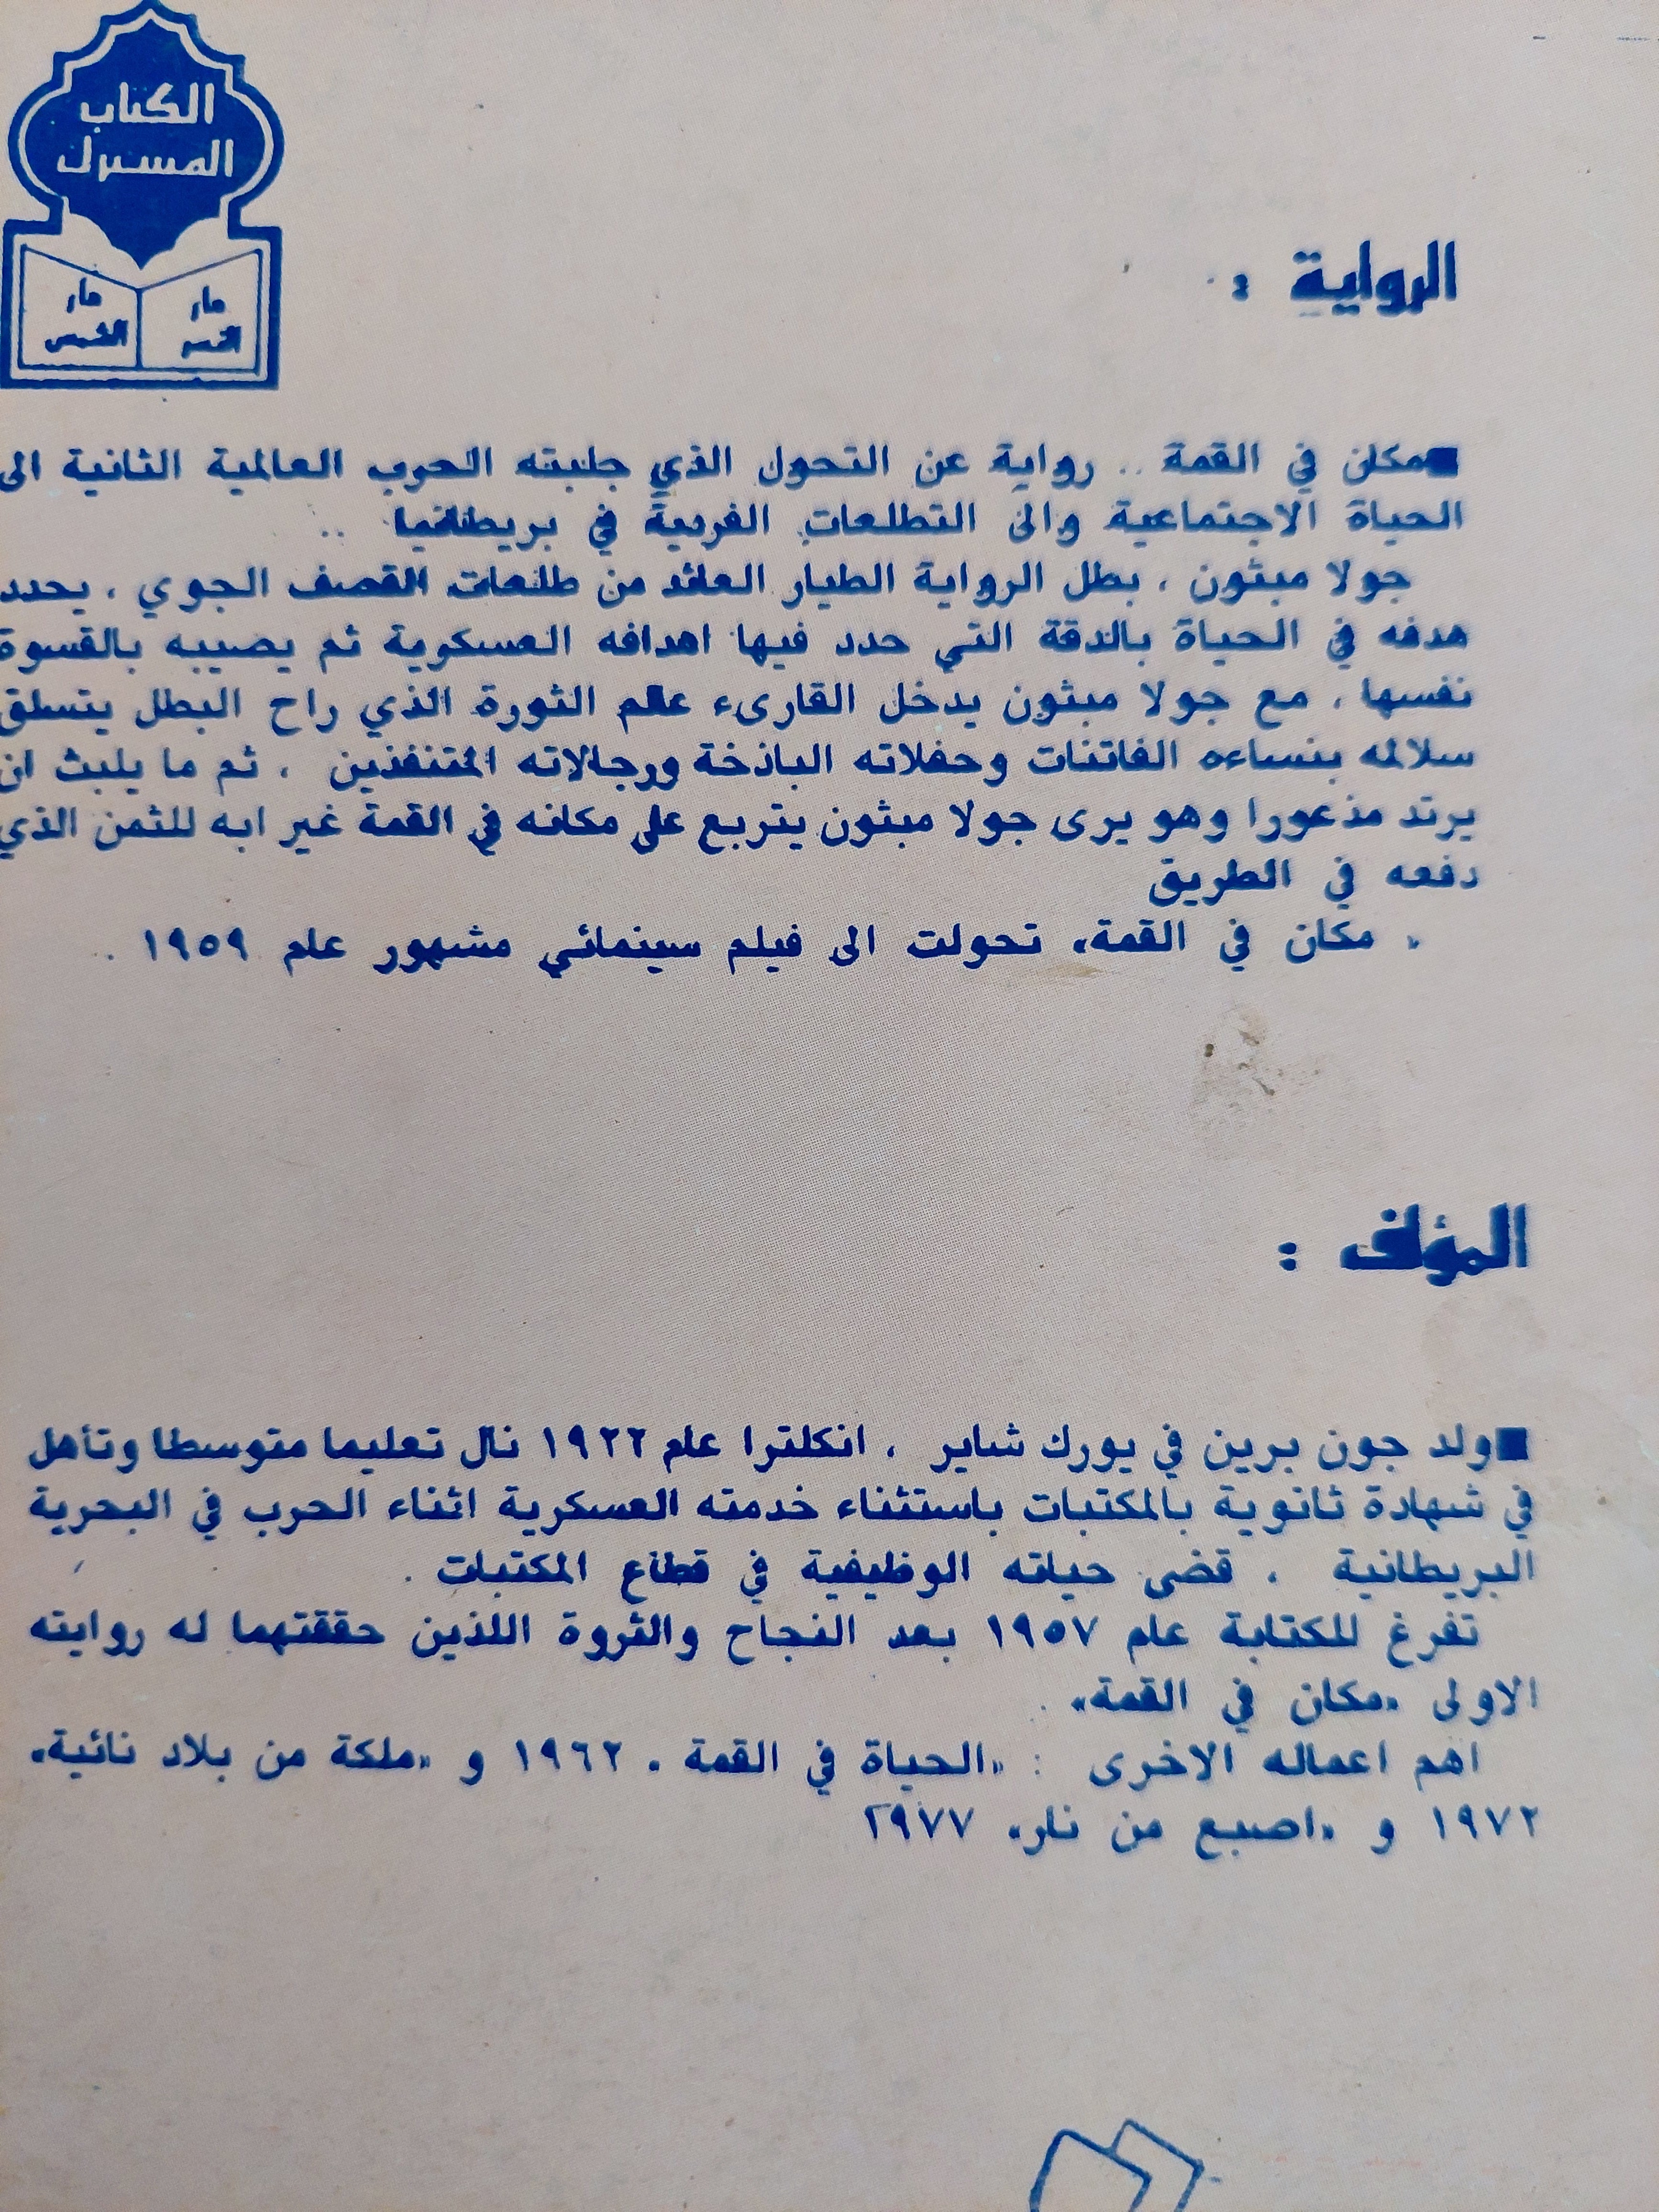 الكتاب
المشترك
دار
دار
الشمس
الرواية :
■مكان في القمة .. رواية عن التحول الذي جلبته الحرب العالمية الثانية الى
الحياة الاجتماعية والى التطلعات الفردية في بريطانيا ..
جولا مبثون ، بطل الرواية الطيار العائد من طلعات القصف الجوي ، يحدد
هدفه في الحياة بالدقة التي حدد فيها اهدافه العسكرية ثم يصيبه بالقسوة
نفسها ، مع جولا مبثون يدخل القارىء عالم الثورة الذي راح البطل يتسلق
سلالمه بنساءه الفاتنات وحفلاته الباذخة ورجالاته المتنفذين ، ثم ما يلبث ان
يرتد مذعورا وهو يرى جولا مبثون يتربع على مكانه في القمة غير ابه للثمن الذي
دفعه في الطريق
« مكان في القمة» تحولت الى فيلم سينمائي مشهور عام ١٩٥٩ .
المؤلف :
■ولد جون برين في يورك شاير ، انكلترا عام ١٩٢٢ نال تعليما متوسطا وتأهل
في شهادة ثانوية بالمكتبات باستثناء خدمته العسكرية اثناء الحرب في البحرية
البريطانية . قضى حياته الوظيفية في قطاع المكتبات .
تفرغ للكتابة عام ١٩٥٧ بعد النجاح والثروة اللذين حققتهما له روايته
الاولى «مكان في القمة» .
اهم اعماله الاخرى : «الحياة في القمة » ١٩٦٢ و «ملكة من بلاد نائية»
١٩٧٢ و «اصبع من نار» ٢٩٧٧